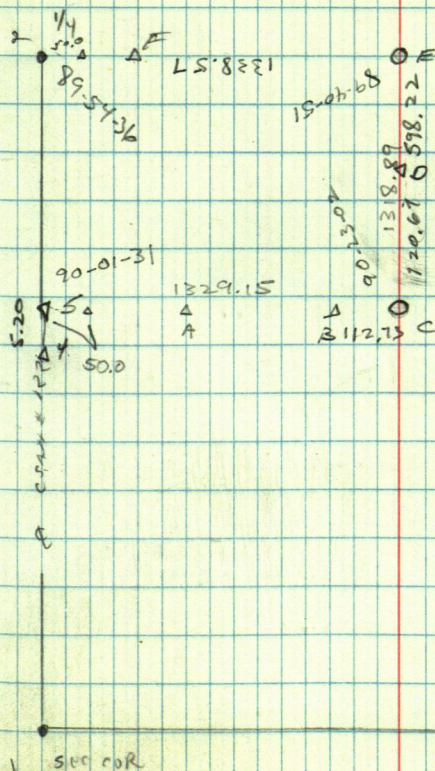 1/4
2
50.0
F
1338.57
E
89-54-36
89-40-51
598.22
1318.89
D
720.67
90-23-02
90-01-31
1329.15
5
A
B 112.73 C
5.20
4
50.0
1 SEC COR